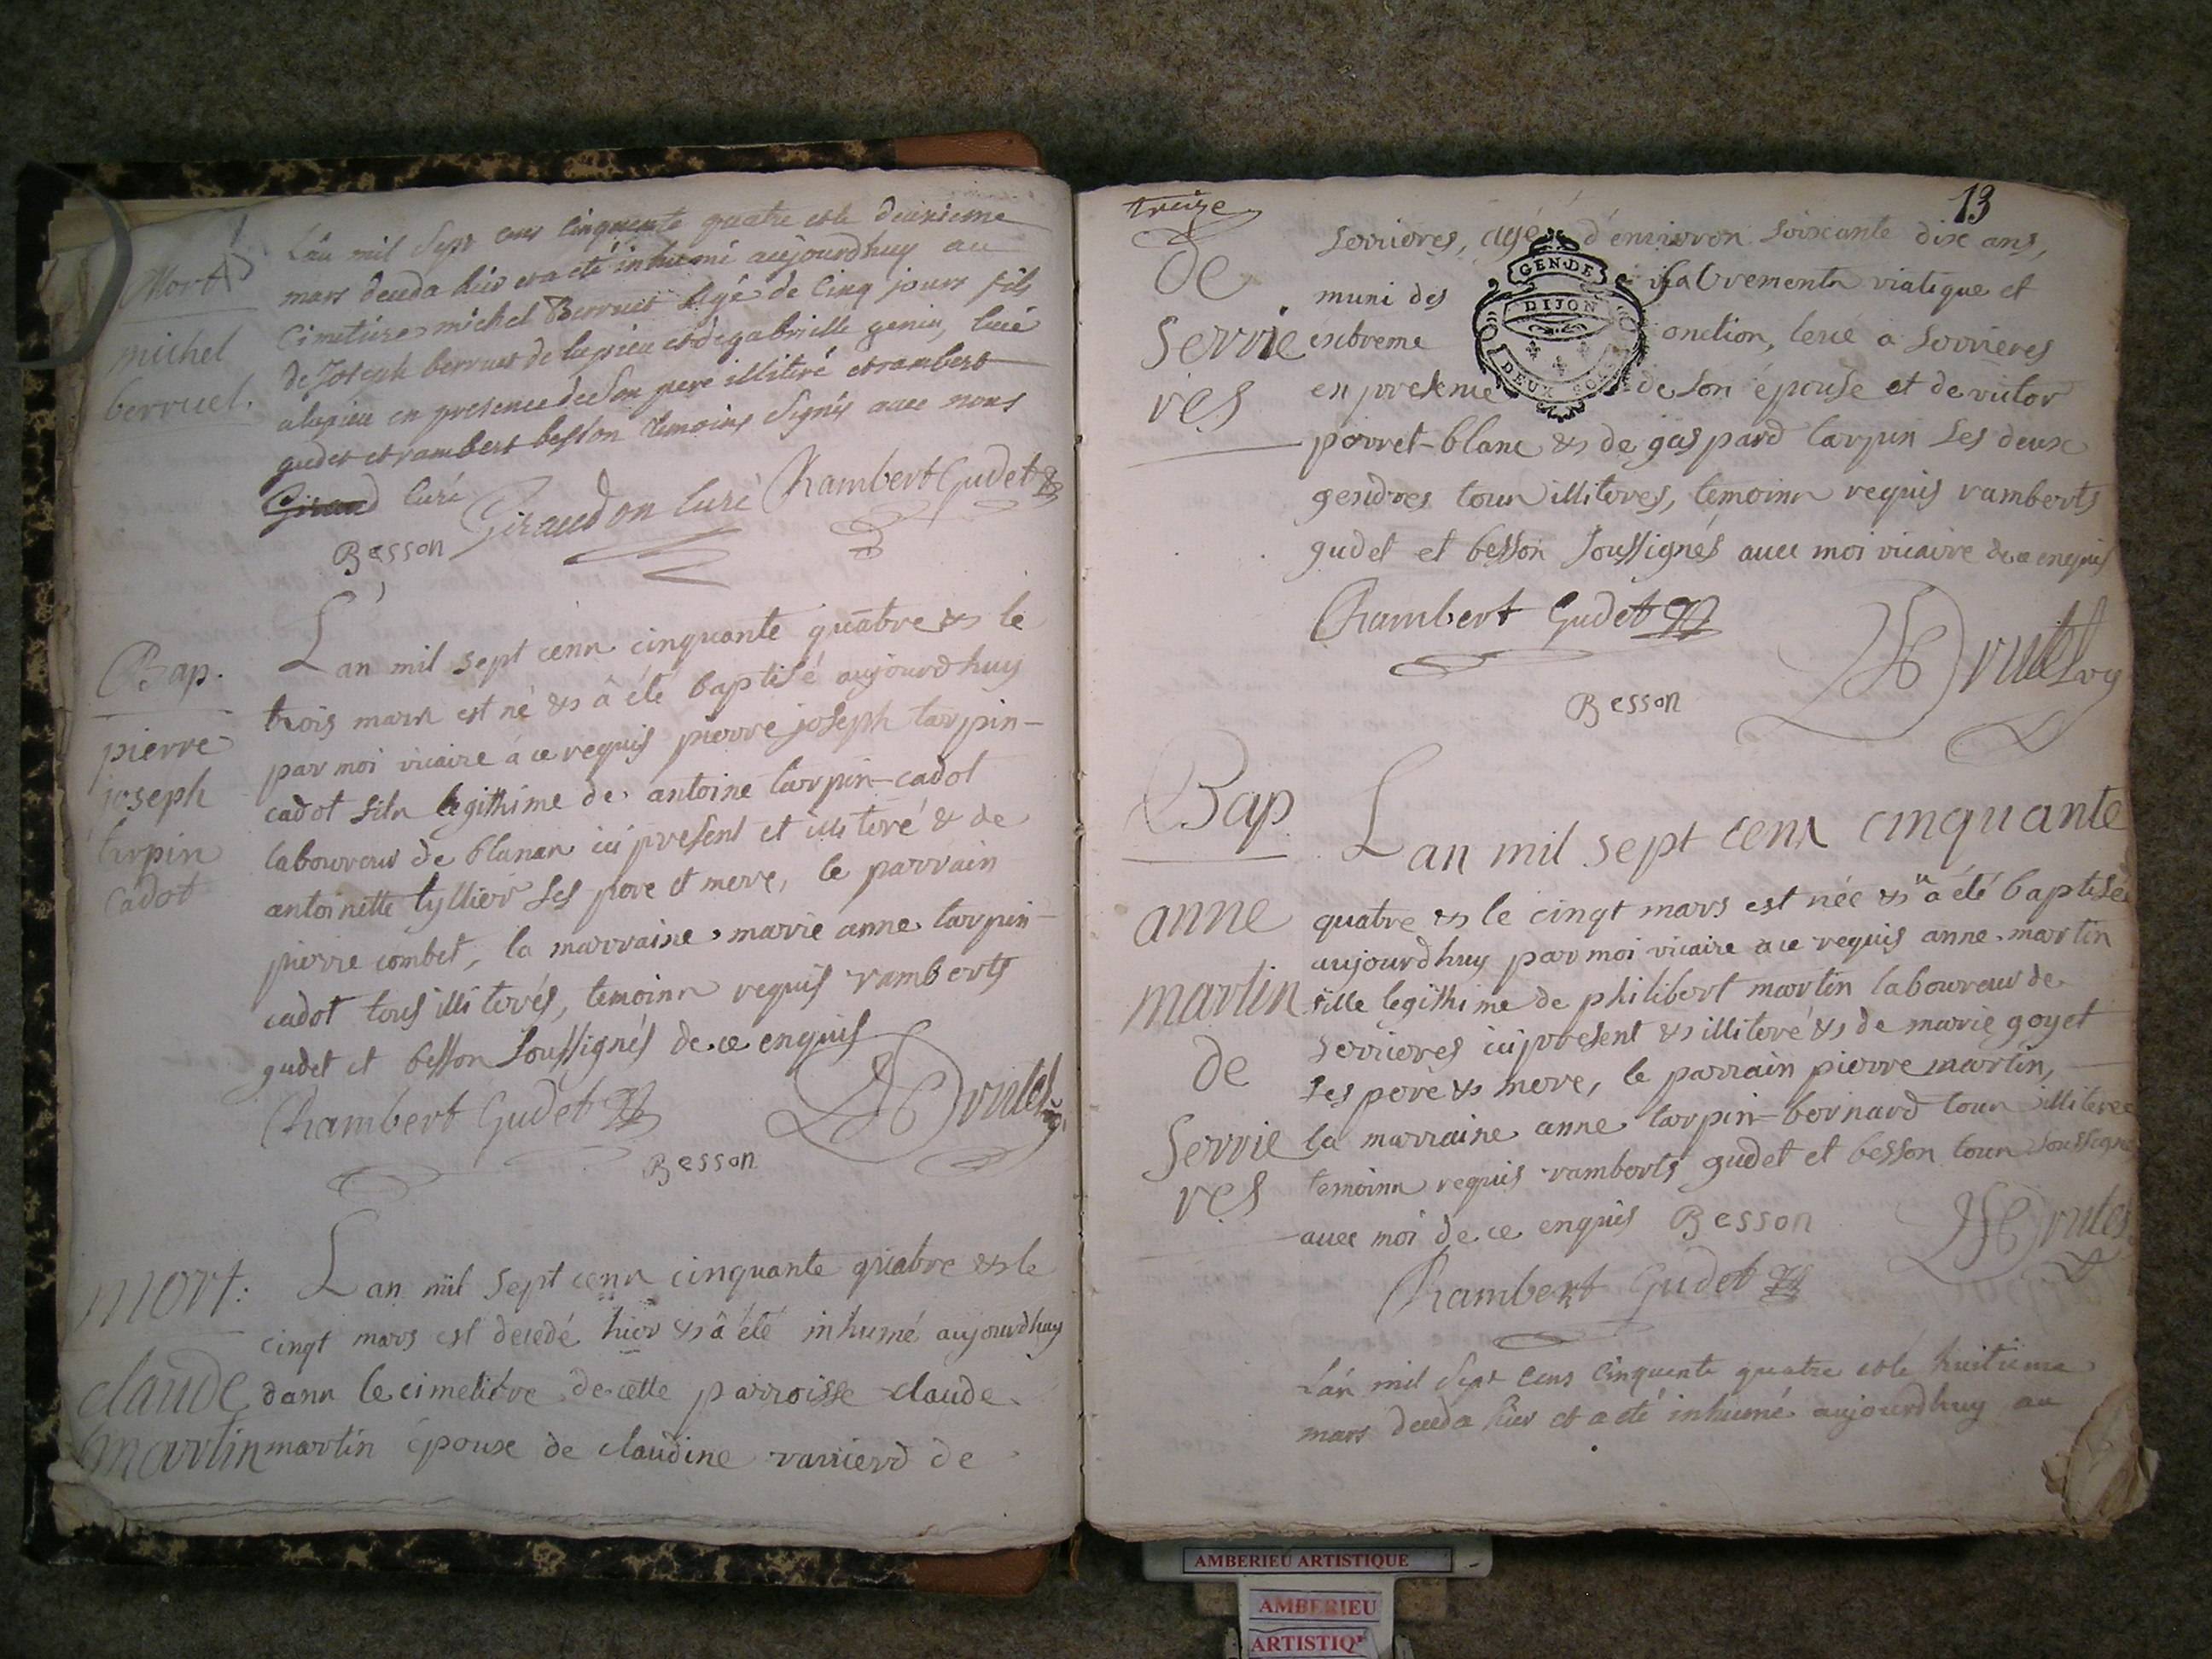 Mort
michel
berruet.
L'an mil sept cens cinquente quatre et le deuxieme
mars deceda hier et a eté inhumé aujourdhuy au
Cimetiere michel Berruet agé de cinq jours fils
de Joseph berruet de lupieu et de gabrielle genin, levé
a lupieu en presence de son pere illitéré et rambert
gudet et rambert besson témoins signés avec nous
Giraud Curé
Giraudon Curé Rambert Gudet
Besson
Bap.
pierre
joseph
tarpin
cadot
L'an mil sept cens cinquante quatre & le
trois mars est né & â été baptisé aujourdhuy
par moi vicaire a ce requis pierre joseph tarpin-
cadot fils legithime de antoine tarpin-cadot
laboureur de blanan ici present et illiteré & de
antoinette tyllier ses pere et mere, le parrain
pierre combet, la marraine marie anne tarpin-
cadot tous illiterés, temoins requis ramberts
gudet et besson soussignés de ce enquis
Rambert Gudet
Besson
mort:
claude
martin
L'an mil sept cens cinquante quatre & le
cinqt mars est decedé hier & â été inhumé aujourdhuy
dans le cimetière de cette parroisse claude
martin époux de claudine de
treize
13
de
Serrie
res
serrieres, agé d'environ soixante dix ans,
muni des sacrements viatique et
extreme onction, levé a serrieres
en presence de son épouse et de victor
porret-blanc & de gaspard tarpin ses deux
gendres tous illiteres, temoins requis ramberts
gudet et besson soussignés avec moi vicaire de ce enquis
GEN.DE
DIJON
DEUX SOLS
Rambert Gudet
Besson
Bap.
anne
martin
de
Serrie
res
L'an mil sept cens cinquante
quatre & le cinqt mars est née & a été baptisée
aujourdhuy par moi vicaire a ce requis anne martin
fille legithime de philibert martin laboureur de
serrieres ici present & illiteré & de marie goyet
ses pere & mere, le parrain pierre martin,
la marraine anne tarpin-bernard tous illiteres
temoins requis ramberts gudet et besson tous soussignés
avec moi de ce enquis Besson
Rambert Gudet
L'an mil sept cens cinquente quatre et le huitieme
mars deceda hier et a eté inhumé aujourdhuy au
AMBERIEU ARTISTIQUE
AMBERIEU
ARTISTIQ